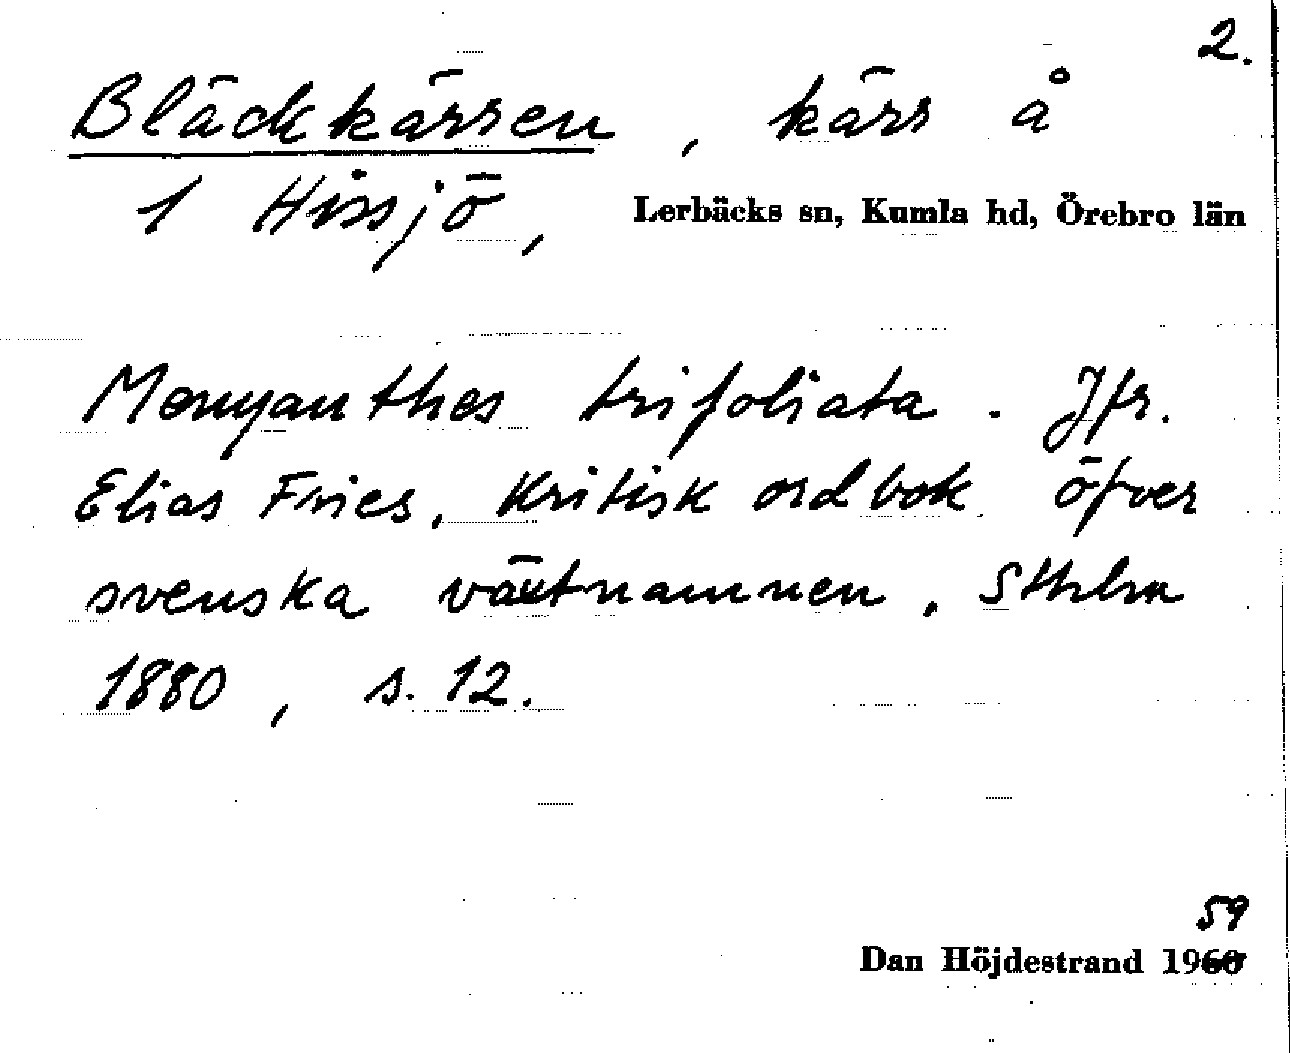 2.
Bläckkärren, kärr å
1 Hissjö, Lerbäcks sn, Kumla hd, Örebro län
Menyanthes trifoliata. Jfr.
Elias Fries, Kritisk ordbok öfver
svenska växtnamnen, Sthlm
1880, s. 12.
59
Dan Höjdestrand 1960